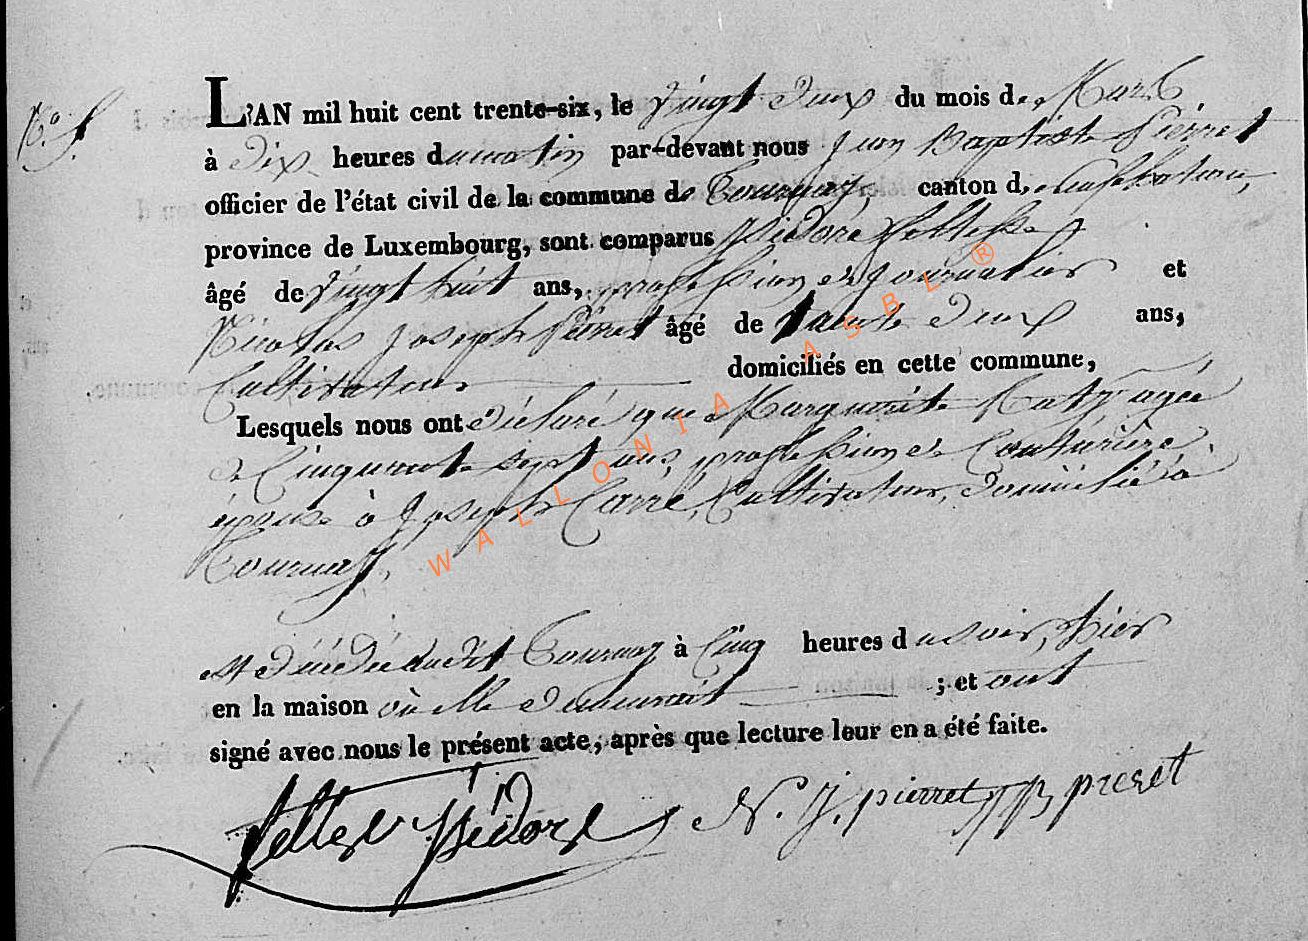 N.° 5.
L'AN mil huit cent trente-six, le vingt deux du mois de Mars
à dix heures du matin par-devant nous Jean Baptiste Pierret
officier de l'état civil de la commune de Tournay, canton de neufchateau,
province de Luxembourg, sont comparus Isidore Feltesse
âgé de vingt huit ans, profession de Journalier et
Nicolas Joseph Pierret âgé de trente deux ans,
Cultivateur domiciliés en cette commune,
Lesquels nous ont déclaré que Marguerite agée
de Cinquante sept ans, profession de Couturière
épouse à Joseph Carré, Cultivateur, domicilié à
Tournay,
est décédée audit Tournay à Cinq heures du soir, hier
en la maison où elle demeurait ; et ont
signé avec nous le présent acte, après que lecture leur en a été faite.
Isidore N. J. pierret JB pieret
WALLONIA ASBL ®